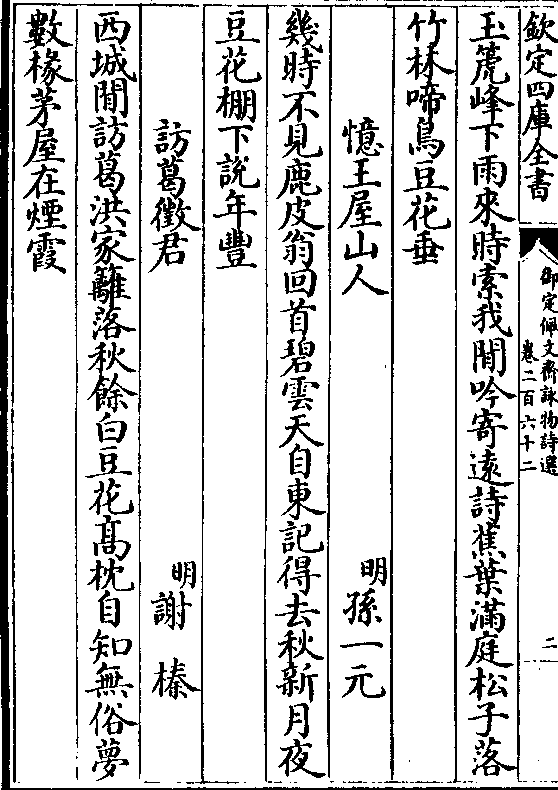 欽定四庫全書
御定佩文齋詠物詩選
卷二百六十二
二
玉篼峰下雨來時索我閒吟寄遠詩蕉葉滿庭松子落
竹林啼鳥豆花垂
憶王屋山人
明孫一元
幾時不見鹿皮翁回首碧雲天自東記得去秋新月夜
豆花棚下說年豐
訪葛徵君
明謝榛
西城閒訪葛洪家籬落秋餘白豆花高枕自知無俗夢
數椽茅屋在煙霞